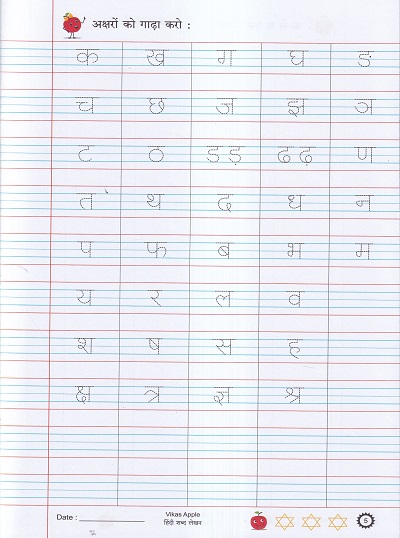 अक्षरों को गाढ़ा करो :
क ख ग घ ङ
च छ ज झ ञ
ट ठ ड ड़ ढ ढ़ ण
त थ द ध न
प फ ब भ म
य र ल व
श ष स ह
क्ष त्र ज्ञ श्र
Date :
Vikas Apple
हिंदी शब्द लेखन
5